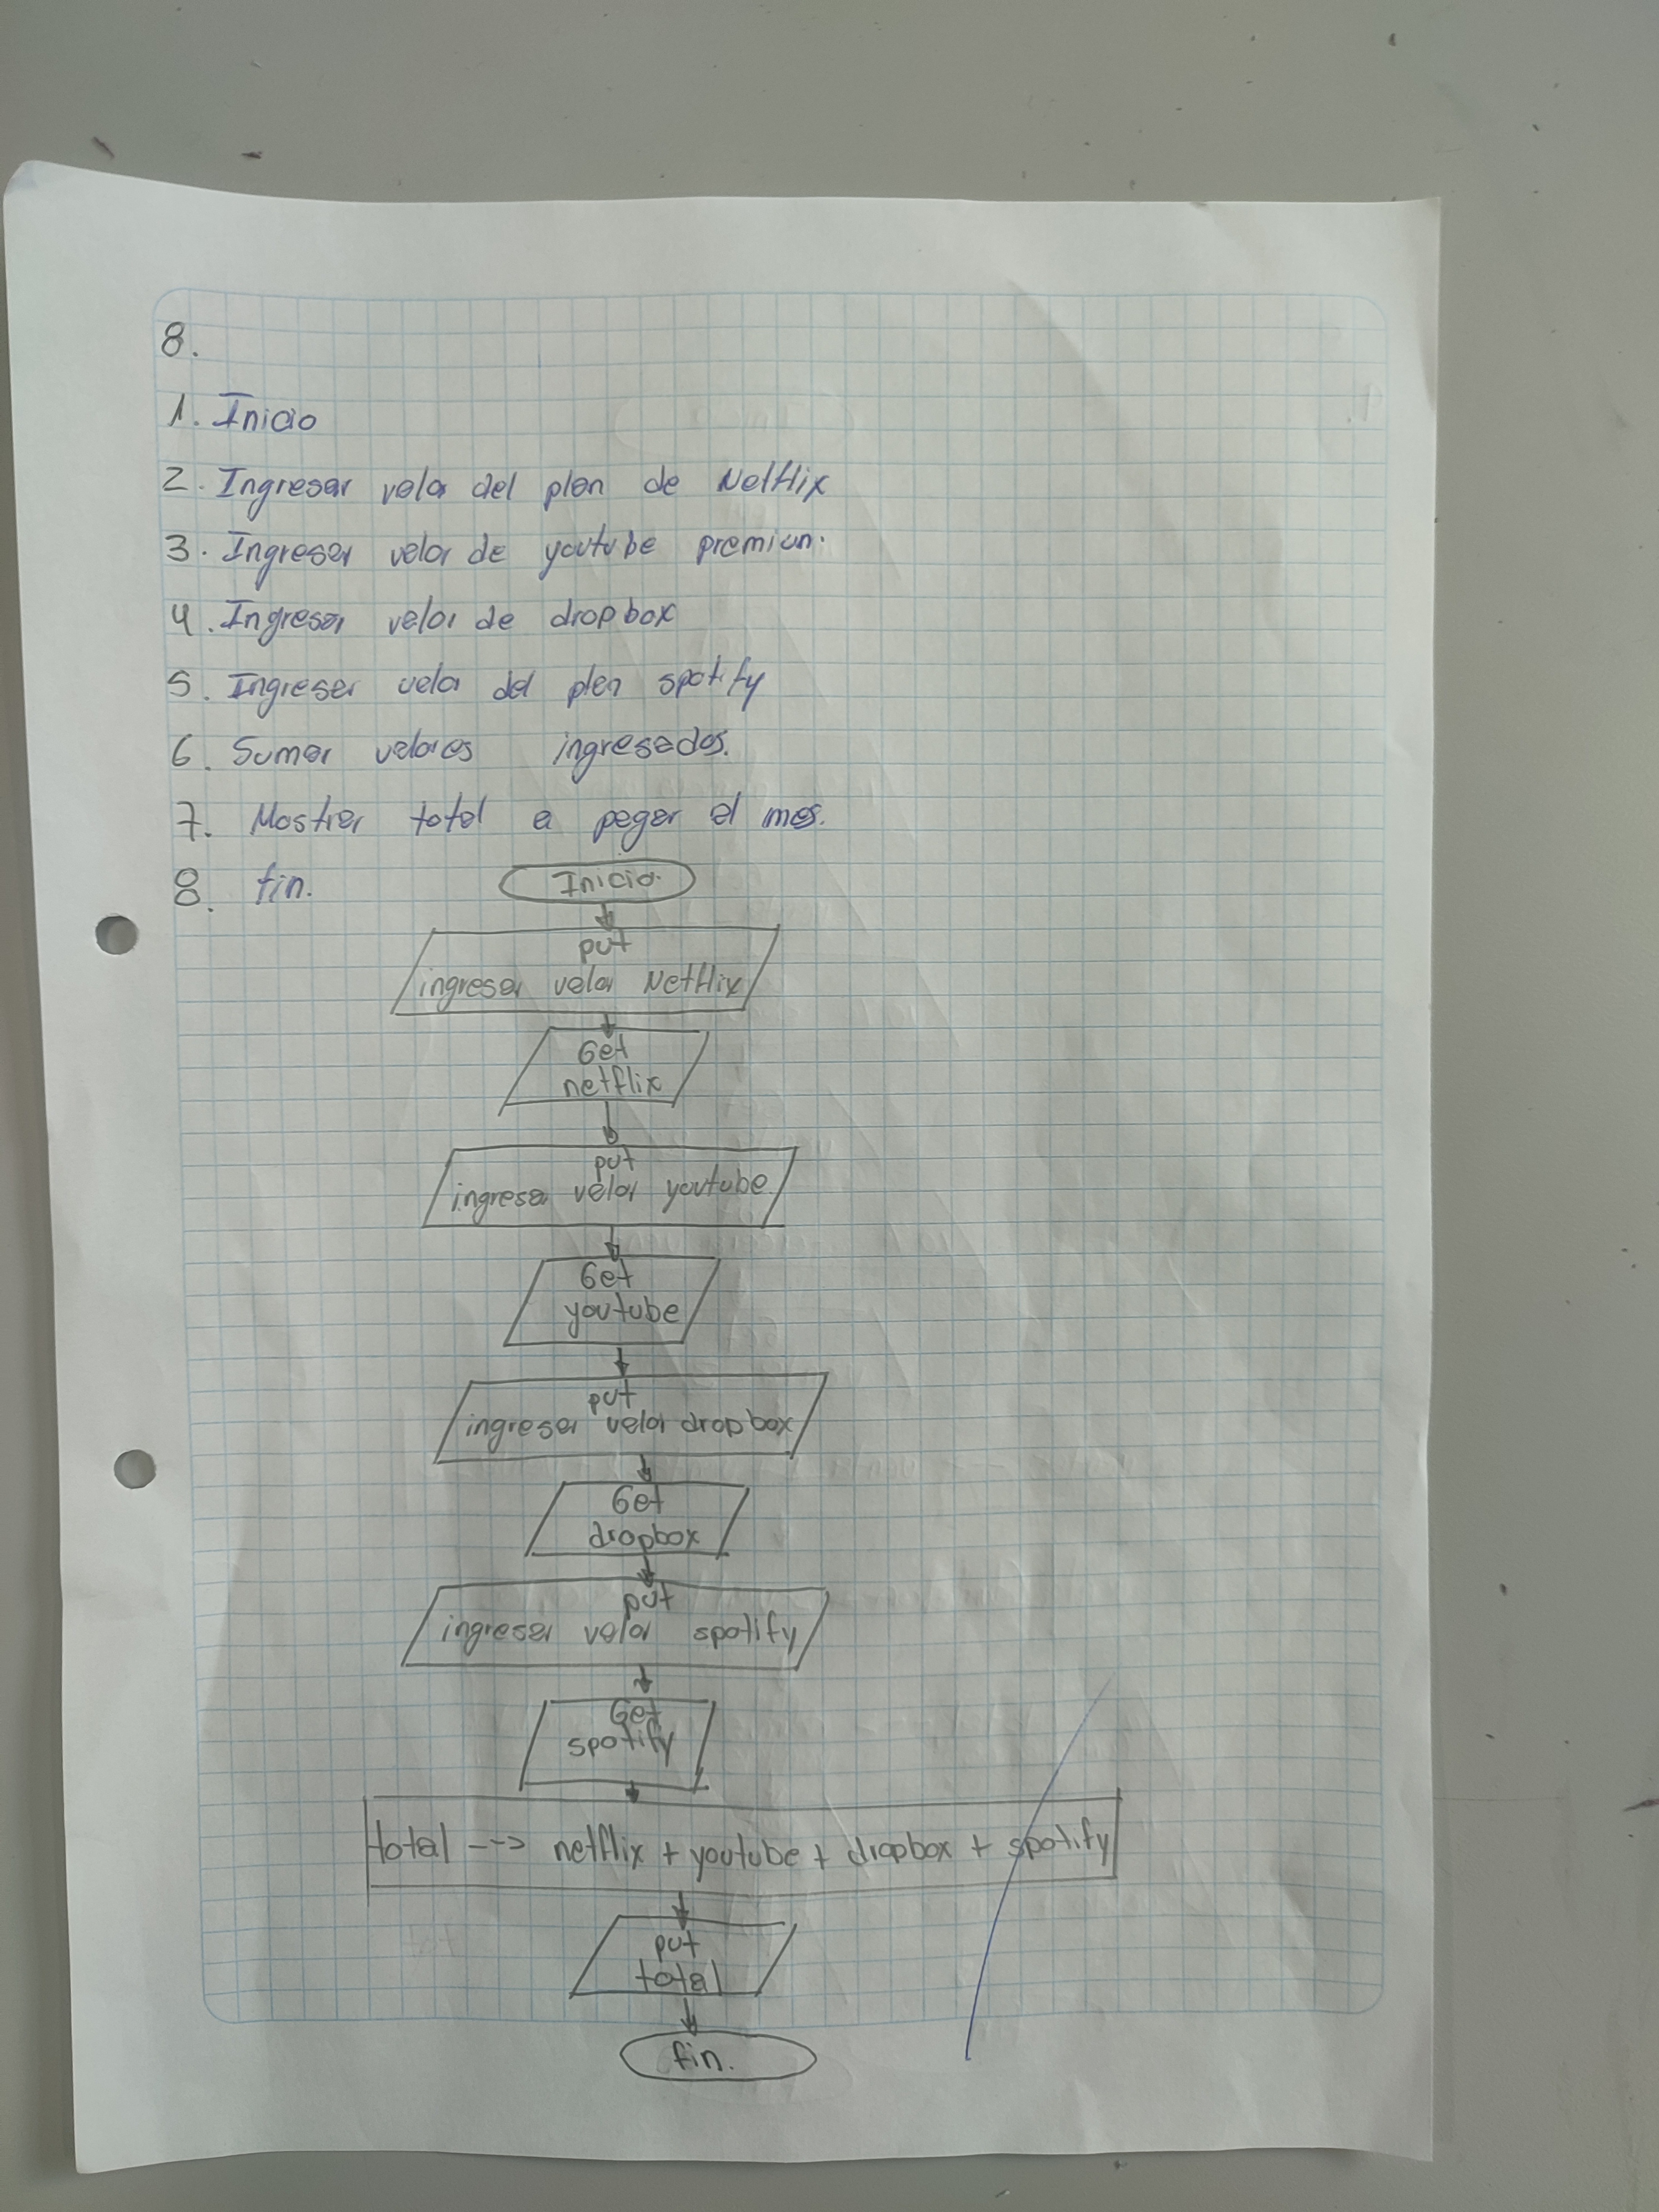 8.
1. Inicio
2. Ingresar valor del plan de Netflix
3. Ingresar valor de youtube premiun.
4. Ingresar valor de dropbox
5. Ingresar valor del plan spotify
6. Sumar valores ingresados.
7. Mostrar total a pagar al mes.
8. fin.
Inicio.
put
ingresar valor Netflix
Get
netflix
put
ingresar valor youtube
Get
youtube
put
ingresar valor dropbox
Get
dropbox
put
ingresar valor spotify
Get
spotify
total --> netflix + youtube + dropbox + spotify
put
total
fin.